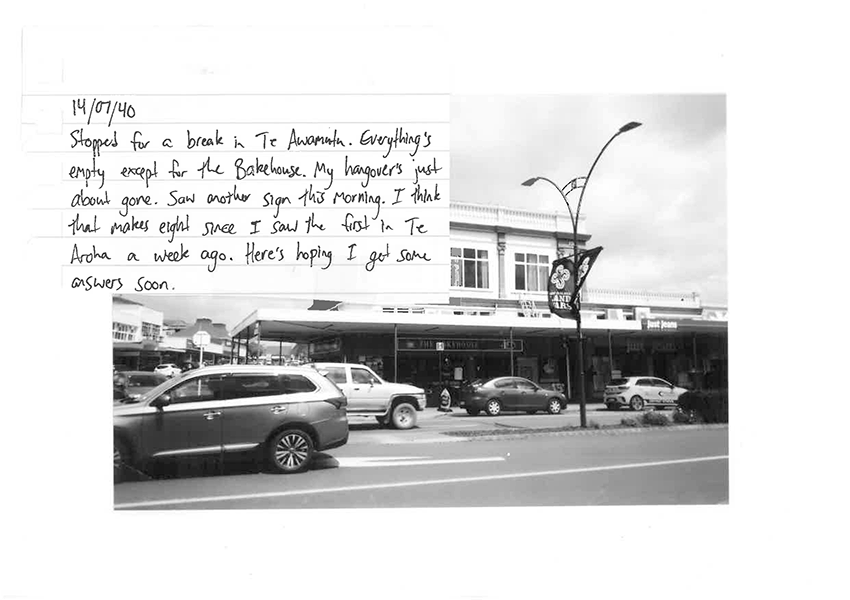 14/07/40
Stopped for a break in Te Awamutu. Everything's
empty except for the Bakehouse. My hangover's just
about gone. Saw another sign this morning. I think
that makes eight since I saw the first in Te
Aroha a week ago. Here's hoping I get some
answers soon.
LAND
WARS
Just Jeans
THE